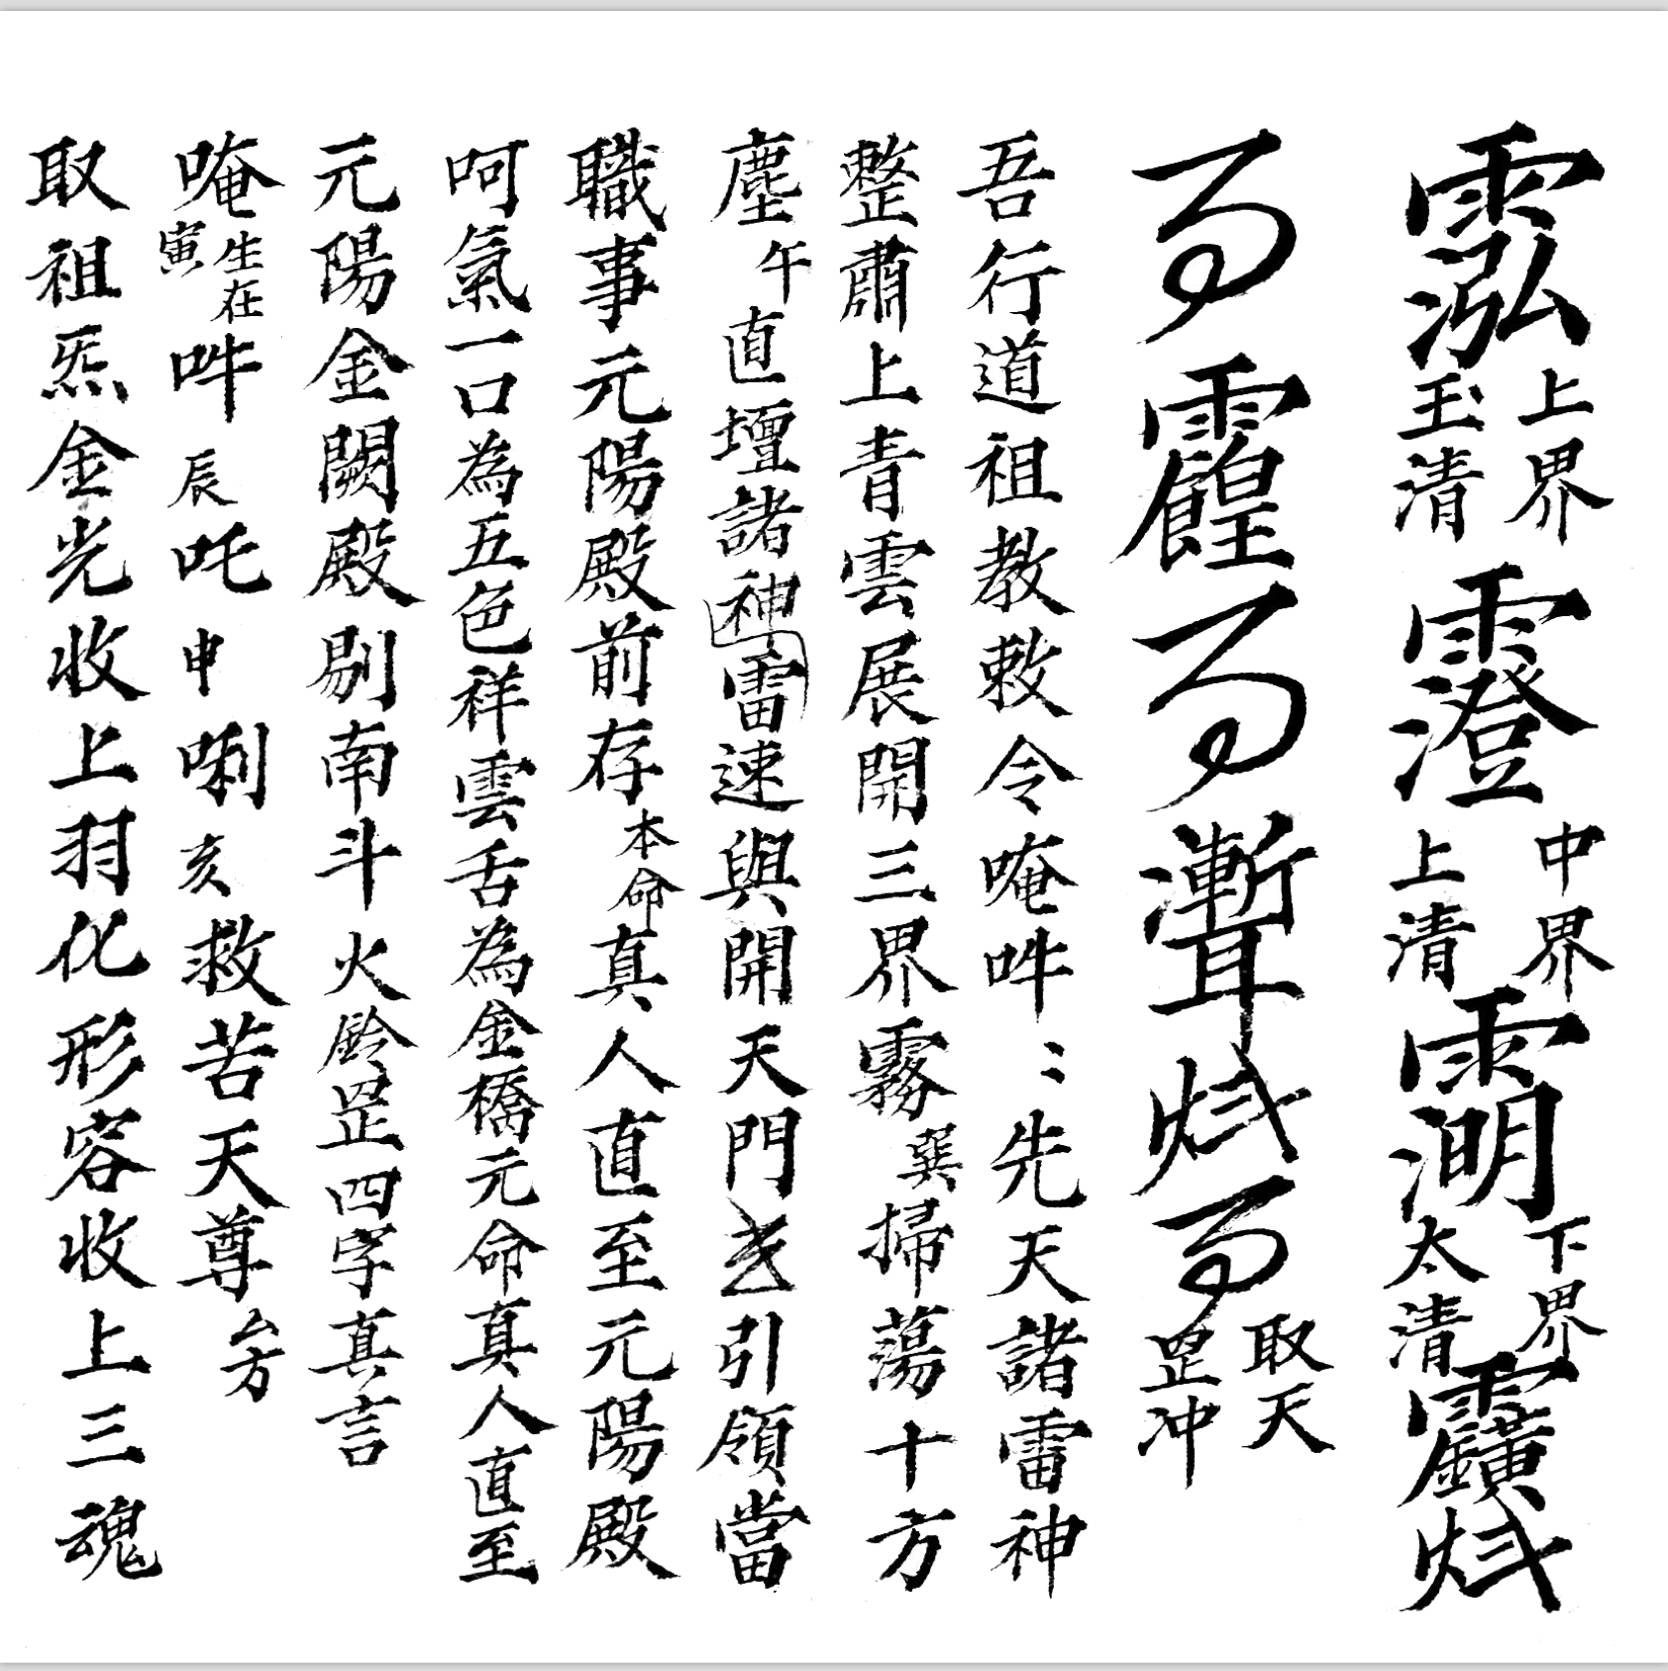 上界玉清中界上清下界太清
取天罡冲
吾行道祖教敕令唵吽〻先天諸雷神
整肅上青雲展開三界霧巽掃蕩十方
塵午直壇諸神雷速與開天門引領當
職事元陽殿前存本命真人直至元陽殿
呵氣一口為五色祥雲舌為金橋元命真人直至
元陽金闕殿剔南斗火鈴罡四字真言
唵生在寅吽辰吒申唎亥救苦天尊厶方
取祖炁金光收上羽化形容收上三魂